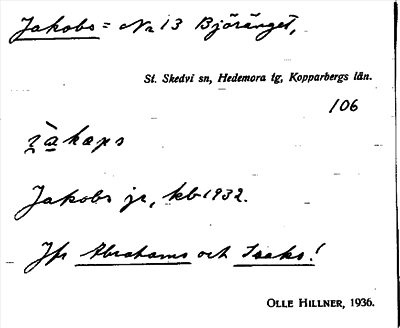 Jakobs = Nr 13 Björänget,
St. Skedvi sn, Hedemora tg, Kopparbergs län.
106
Jakobs jr, kb 1932.
Jfr Abrahams och Isaks!
OLLE HILLNER, 1936.